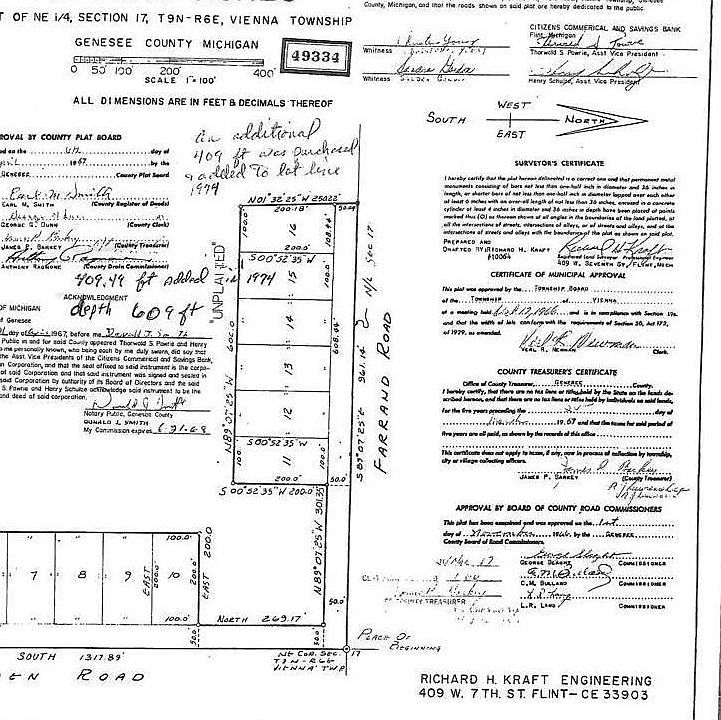 T OF NE 1/4, SECTION 17, T9N-R6E, VIENNA TOWNSHIP
GENESEE COUNTY MICHIGAN
49334
0 50' 100' 200' 400'
SCALE 1"=100'
ALL DIMENSIONS ARE IN FEET & DECIMALS THEREOF
County, Michigan, and that the roads shown on said plat are hereby dedicated to the public
CITIZENS COMMERCIAL AND SAVINGS BANK
Flint, Michigan
Witness
Thorwald S. Powrie, Asst Vice President
Witness
Henry Schulze, Asst Vice President
SOUTH
WEST
EAST
NORTH
ROVAL BY COUNTY PLAT BOARD
day of
1967 by the
GENESEE County Plat Board
EARL M. SMITH (County Register of Deeds)
GEORGE G. DUNN (County Clerk)
JAMES P. BARKEY (County Treasurer)
ANTHONY RAGNONE (County Drain Commissioner)
An additional
409 ft was purchased
& added to lot line
1974
409.49 ft added in 1974
depth 609 ft
ACKNOWLEDGMENT
OF MICHIGAN
of Genesee
day of 1967, before me
Public in and for said County appeared Thorwald S. Powrie and Henry
me personally known, who being each by me duly sworn, did say that
the Asst. Vice Presidents of the Citizens Commercial and Savings Bank,
an Corporation, and that the seal affixed to said instrument is the corpo-
of said Corporation and that said instrument was signed and sealed in
said Corporation by authority of its Board of Directors and the said
S. Powrie and Henry Schulze acknowledge said instrument to be the
and deed of said corporation.
Notary Public, Genesee County
DONALD J. SMITH
My Commission expires
N 01° 32' 25" W 250.22'
200.18'
50.04'
100.0'
16
108.44'
200.0'
S 00° 52' 35" W
15
14
13
12
S 00° 52' 35 W
100.0'
11
100.0'
200.0'
50.0'
S 00° 52' 35" W 200.0'
"UNPLATTED"
N 89° 07' 25" W 600.0'
608.44'
S 89° 07' 25" E 961.14'
N/L SEC 17
FARRAND ROAD
N 89° 07' 25" W 301.35'
100.0'
7 8 9 10
EAST 200.0'
EAST 200.0
100.0'
50.0'
NORTH 269.17'
50.0'
50.0'
SOUTH 1317.89'
NE COR. SEC. 17
T9N-R6E
VIENNA TWP.
PLACE OF
BEGINNING
EN ROAD
SURVEYOR'S CERTIFICATE
I hereby certify that the plat hereon delineated is a correct one and that permanent metal
monuments consisting of bars not less than one-half inch in diameter and 36 inches in
length, or shorter bars of not less than one-half inch in diameter lapped over each
other at least 6 inches with an over-all length of not less than 36 inches, encased in a concrete
cylinder at least 4 inches in diameter and 36 inches in depth have been placed at points
marked thus (O) as thereon shown at all angles in the boundaries of the land platted, at
all the intersections of streets, intersections of alleys, or of streets and alleys, and at the
intersections of streets and alleys with the boundaries of the plat as shown on said plat.
PREPARED AND
DRAFTED BY: RICHARD H. KRAFT
#10064
Registered Land Surveyor Professional Engineer
409 W. SEVENTH ST., FLINT, MICH
CERTIFICATE OF MUNICIPAL APPROVAL
This plat was approved by the TOWNSHIP BOARD
of the TOWNSHIP of VIENNA
at a meeting held and is in compliance with Section 19a
and that the width of lots conform with the requirements of Section 30, Act 172,
of 1929, as amended.
VERL R. NEWMAN Clerk.
COUNTY TREASURER'S CERTIFICATE
Office of County Treasurer, GENESEE County.
I hereby certify, that there are no tax liens or titles held by the State on the lands de-
scribed hereon, and that there are no tax liens or titles held by individuals on said lands,
for the five years preceding the day of
1967 and that the taxes for said period of
five years are all paid, as shown by the records of this office.
This certificate does not apply to taxes, if any, now in process of collection by township,
city or village collecting officers.
JAMES P. BARKEY (County Treasurer)
APPROVAL BY BOARD OF COUNTY ROAD COMMISSIONERS
This plat has been examined and was approved on the 1st
day of November 1966 by the GENESEE
County Board of Road Commissioners.
GEORGE SLAGHT COMMISSIONER
C.M. BULLARD COMMISSIONER
L.R. LANG COMMISSIONER
COUNTY TREASURER
RICHARD H. KRAFT ENGINEERING
409 W. 7TH. ST. FLINT-CE 33903